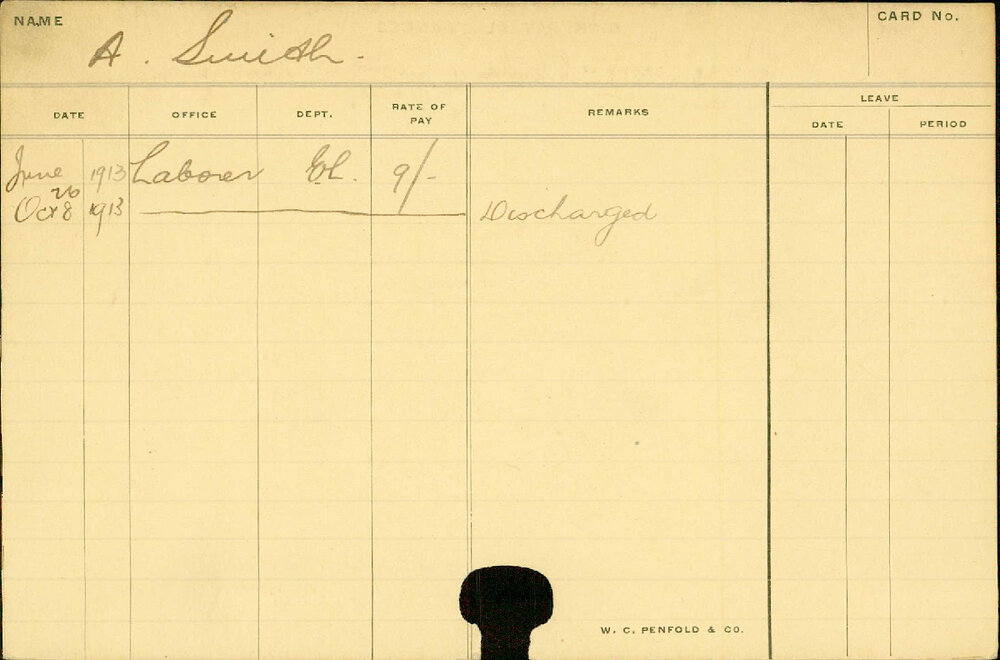 NAME
A. Smith.
CARD No.
DATE OFFICE DEPT. RATE OF PAY REMARKS LEAVE
DATE PERIOD
June 26 1913 Laborer 9/-
Oct 8 1913 Discharged
W. C. PENFOLD & CO.